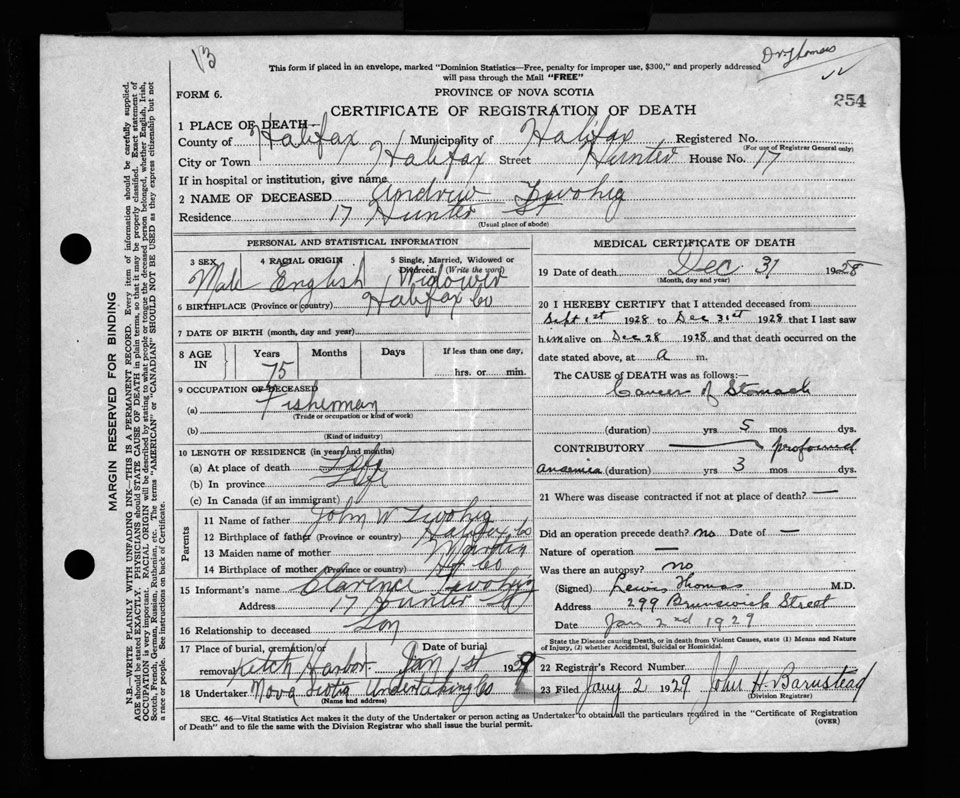 13
Dr Thomas
This form if placed in an envelope, marked "Dominion Statistics—Free, penalty for improper use, $300," and properly addressed
will pass through the Mail "FREE"
FORM 6.
PROVINCE OF NOVA SCOTIA
254
CERTIFICATE OF REGISTRATION OF DEATH
1 PLACE OF DEATH—
County of Halifax Municipality of Halifax Registered No.
(For use of Registrar General only)
City or Town Halifax Street Hunter House No. 17
If in hospital or institution, give name
2 NAME OF DECEASED Andrew Twohig
Residence 17 Hunter St
(Usual place of abode)
MARGIN RESERVED FOR BINDING
N.B.—WRITE PLAINLY WITH UNFADING INK—THIS IS A PERMANENT RECORD. Every item of information should be carefully supplied.
AGE should be stated EXACTLY. PHYSICIANS should STATE CAUSE OF DEATH in plain terms, so that it may be properly classified. Exact statement of
OCCUPATION is very important. RACIAL ORIGIN will be described by stating to what people or tongue the deceased person belonged, whether English, Irish,
Scotch, French, German, Russian, Ruthenian, etc. The terms "AMERICAN" or "CANADIAN" SHOULD NOT BE USED as they express citizenship but not
a race or people. See instructions on back of Certificate.
PERSONAL AND STATISTICAL INFORMATION
3 SEX
4 RACIAL ORIGIN
5 Single, Married, Widowed or
Divorced. (Write the word)
Male English Widower
6 BIRTHPLACE (Province or county) Halifax Co
7 DATE OF BIRTH (month, day and year)
8 AGE IN
Years Months Days If less than one day,
75
hrs. or min.
9 OCCUPATION OF DECEASED
(a) Fisherman
(Trade or occupation or kind of work)
(b)
(Kind of industry)
10 LENGTH OF RESIDENCE (in years and months)
(a) At place of death Life
(b) In province Life
(c) In Canada (if an immigrant)
Parents
11 Name of father John W Twohig
12 Birthplace of father (Province or country) Halifax Co
13 Maiden name of mother Martin
14 Birthplace of mother (Province or county) Hx Co
15 Informant's name Clarence Twohig
Address 17 Hunter St
16 Relationship to deceased Son
17 Place of burial, cremation or Date of burial
removal Ketch Harbor Jan 1st 1929
18 Undertaker Nova Scotia Undertaking Co
(Name and address)
MEDICAL CERTIFICATE OF DEATH
19 Date of death Dec 31 1928
(Month, day and year)
20 I HEREBY CERTIFY that I attended deceased from
Sept 1st 1928 to Dec 31st 1928 that I last saw
him alive on Dec 28 1928 and that death occurred on the
date stated above, at a m.
The CAUSE OF DEATH was as follows:—
Cancer of Stomach
(duration) yrs 5 mos dys.
CONTRIBUTORY profound
anaemia (duration) yrs 3 mos dys.
21 Where was disease contracted if not at place of death? —
Did an operation precede death? no Date of —
Nature of operation —
Was there an autopsy? no
(Signed) Lewis Thomas M.D.
Address 299 Brunswick Street
Date Jan 2nd 1929
State the Disease causing Death, or in death from Violent Causes, state (1) Means and Nature
of Injury, (2) whether Accidental, Suicidal or Homicidal.
22 Registrar's Record Number
23 Filed Jany 2 1929 John H. Barnstead
(Division Registrar)
SEC. 46—Vital Statistics Act makes it the duty of the Undertaker or person acting as Undertaker to obtain all the particulars required in the "Certificate of Registration
of Death" and to file the same with the Division Registrar who shall issue the burial permit.
(OVER)